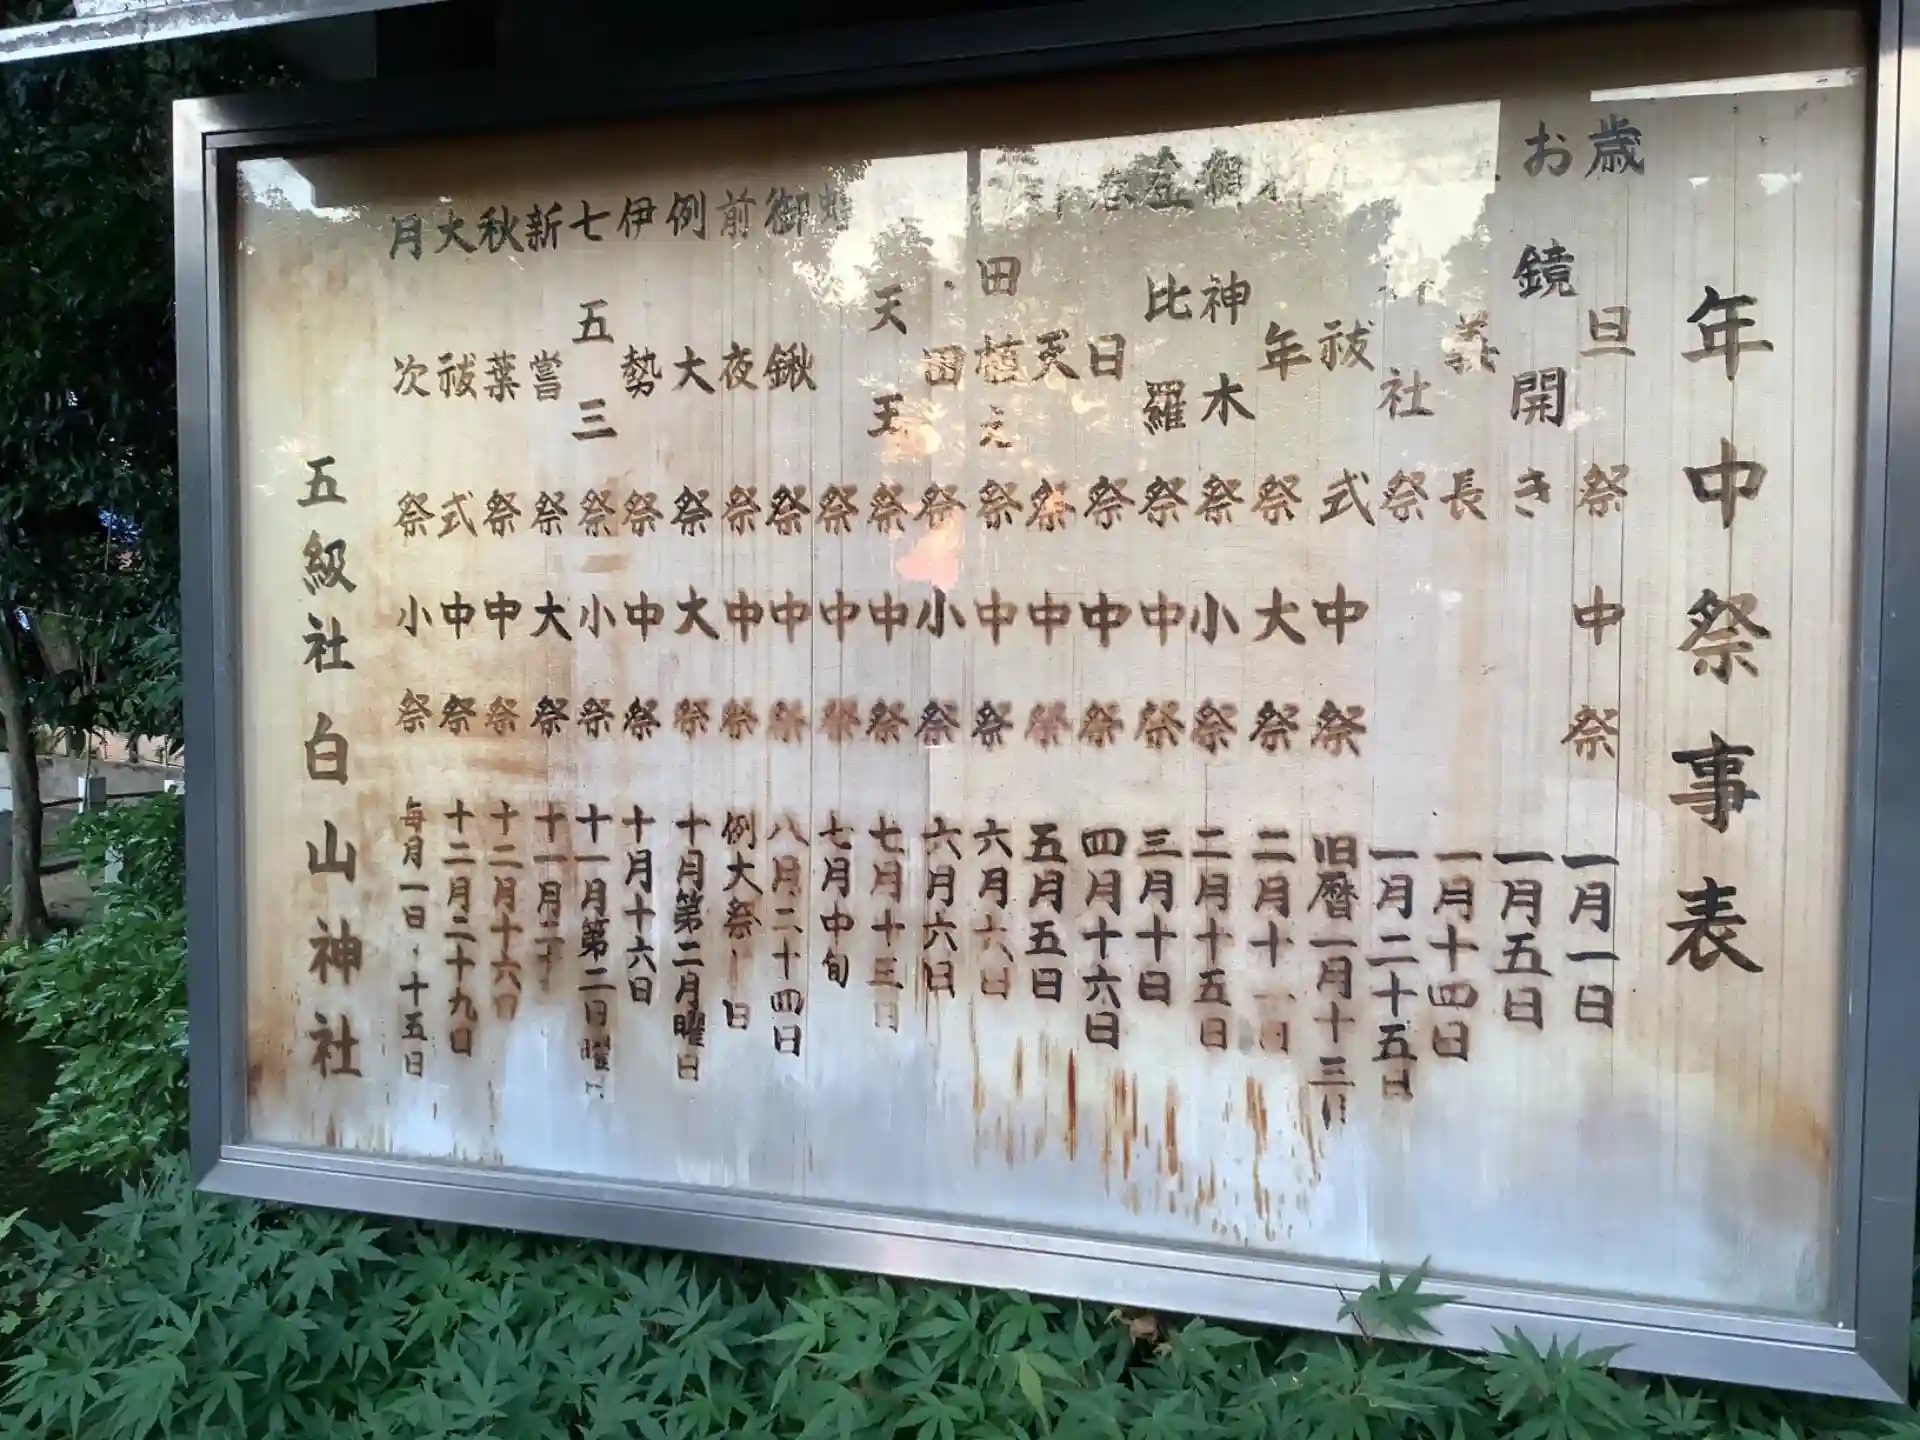 年中祭事表
歳旦祭 中祭 一月一日
お鏡開き 一月五日
義長 一月十四日
社祭 一月二十五日
祓式 中祭 旧暦一月十三日
年祭 大祭 二月十一日
神木祭 小祭 二月十五日
比羅祭 中祭 三月十日
春日祭 中祭 四月十六日
天祭 中祭 五月五日
田植え祭 中祭 六月六日
田祭 小祭 六月六日
天王祭 中祭 七月十三日
祭 中祭 七月中旬
御鍬祭 中祭 八月二十四日
前夜祭 中祭 例大祭 日
例大祭 大祭 十月第二月曜日
伊勢祭 中祭 十月十六日
七五三祭 小祭 十一月第二日曜
新嘗祭 大祭 十一月二十
秋葉祭 中祭 十二月十六日
大祓式 中祭 十二月二十九日
月次祭 小祭 毎月一日・十五日
五級社白山神社